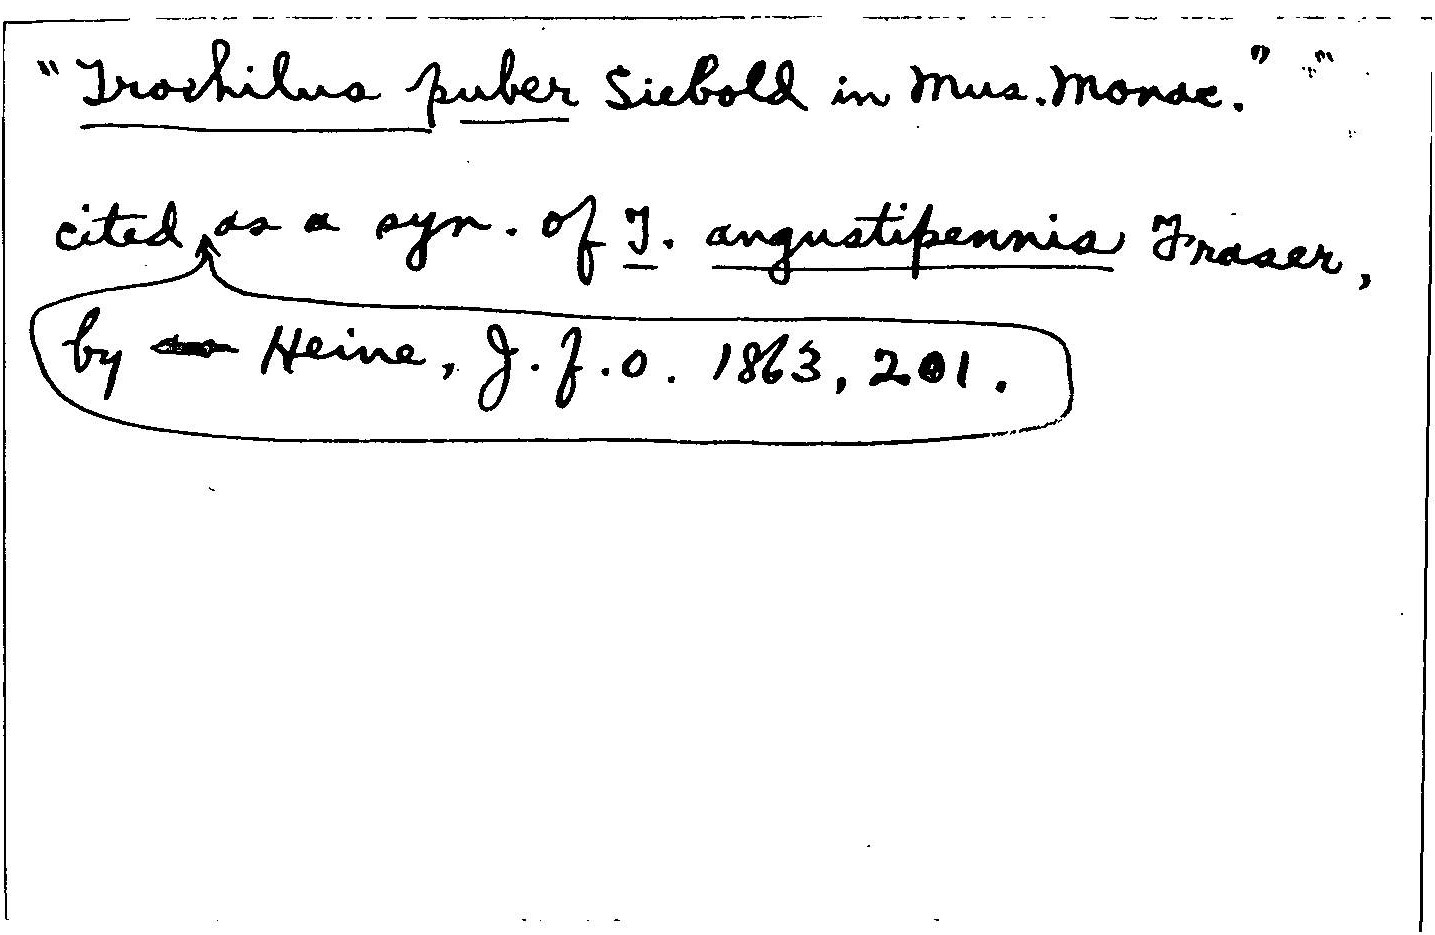 "Trochilus puber Siebold in Mus. Monac."
cited as a syn. of T. angustipennis Fraser,
by Heine, J. f. O. 1863, 201.